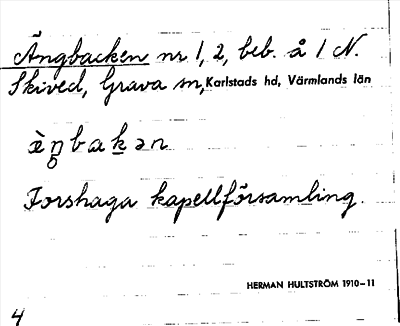 Ängbacken nr 1, 2, beb. å 1 N.
Skived, Grava sn, Karlstads hd, Värmlands län
æ̀ŋ̥bakən
Forshaga kapellförsamling.
HERMAN HULTSTRÖM 1910-11
4